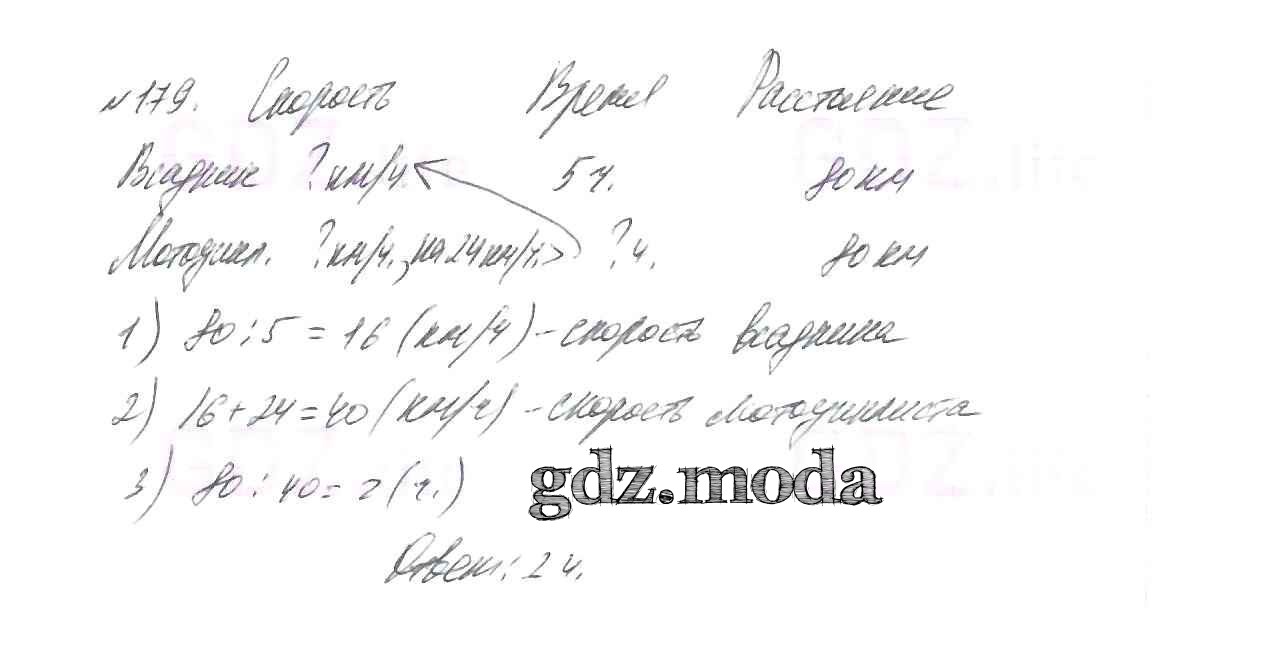 №179. Скорость Время Расстояние
Всадник ?км/ч. 5 ч. 80 км
Мотоцикл. ?км/ч., на 24км/ч.> ?ч. 80 км
1) 80:5=16 (км/ч) - скорость всадника
2) 16+24=40 (км/ч) - скорость мотоциклиста
3) 80:40=2(ч.)
gdz.moda
Ответ: 2 ч.